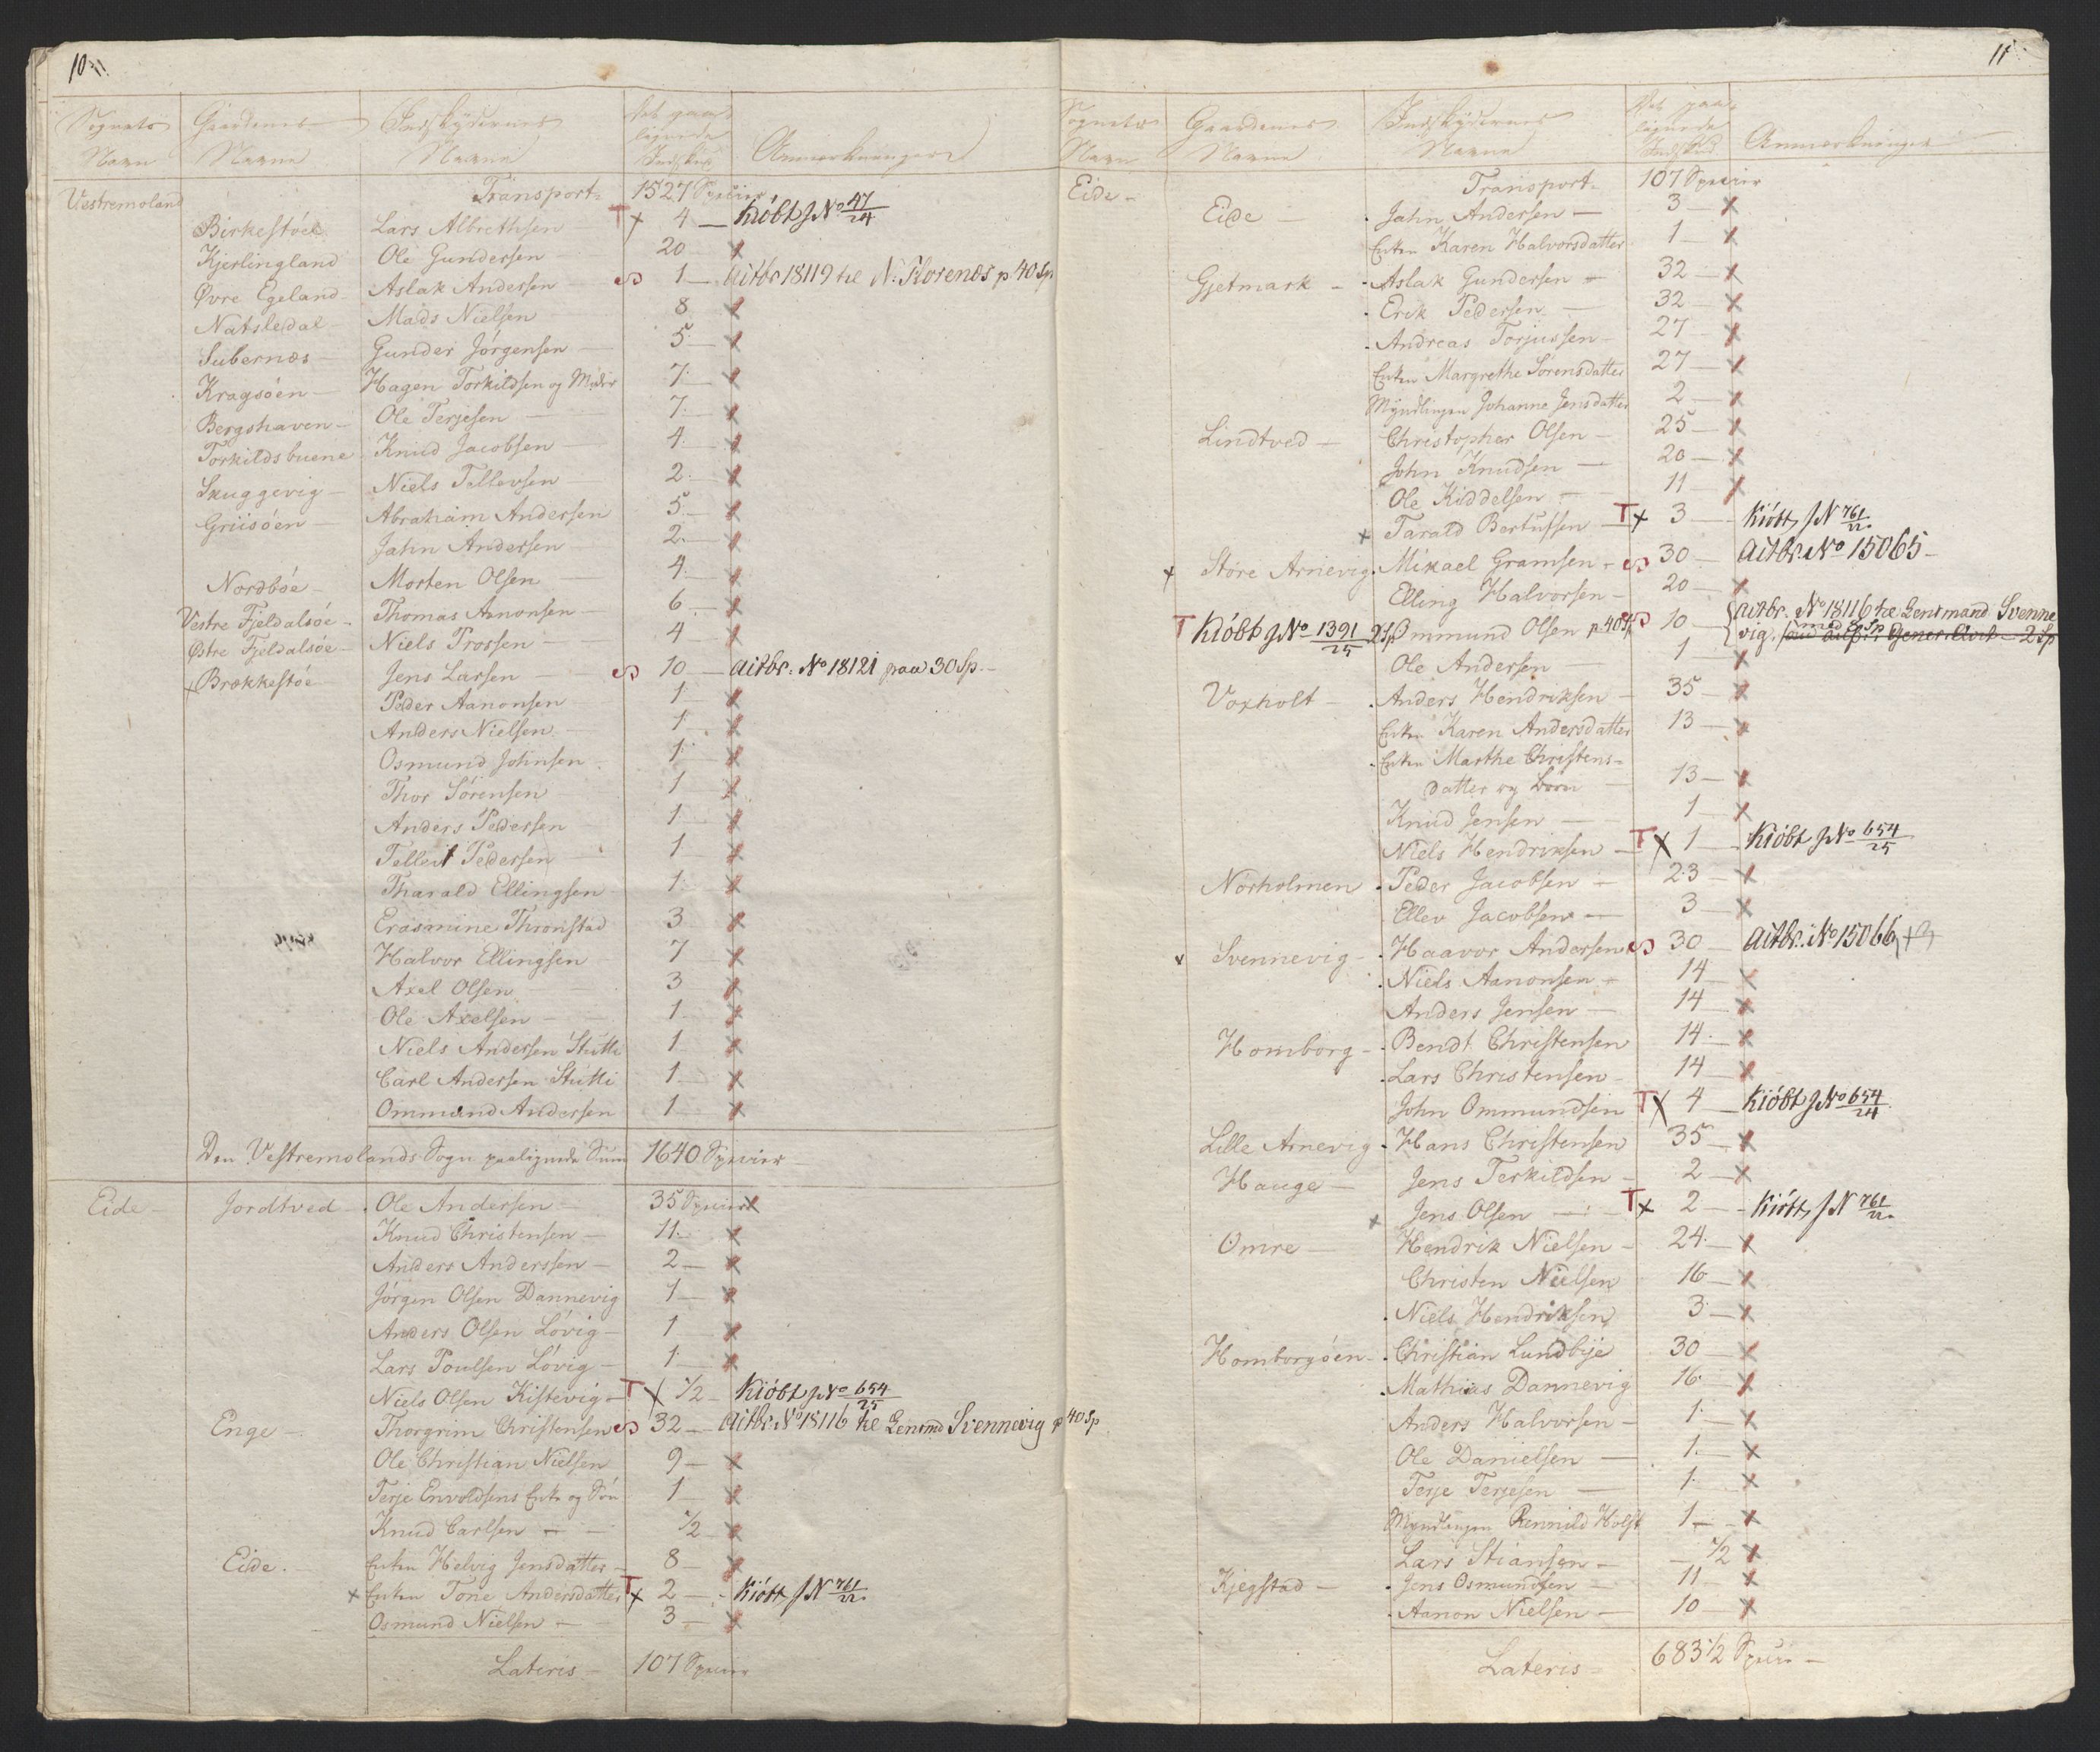 10
Sognets Navn | Gaardenes Navne | Indskydernes Navne | Det paalignede Indskud | Anmærkninger
Vestremoland | Transport | 1527 Specier
Birkestöe | Lars Albrethsen | T x 4 | Kiöbt J No 47/24
Kjerlingland | Ole Gundersen | 20
Øvre Egeland | Aslak Andersen | 1 | Aitbr 18119 til N. Florenæs p 40 Sp
Natsledal | Mads Nielsen | 8
Subernæs | Gunder Jörgensen | 5
Kragsöen | Hagen Torkildsen og Moder | 7
Bergshaven | Ole Terjesen | 7
Torkildsbuene | Knud Jacobsen | 4
Skuggevig | Niels Tellevsen | 2
Griisöen | Abraham Andersen | 5
Jahn Andersen | 2
Nordböe | Morten Olsen | 4
Vestre Fjeldalsöe | Thomas Anonsen | 6
Østre Fjeldalsöe | Niels Prossen | 4
x Brækkestöe | Jens Larsen | 10 | Aitbr. No 18121 paa 30 Sp.
Peder Aanonsen | 1
Anders Nielsen | 1
Osmund Johnsen | 1
Thor Sörensen | 1
Anders Pedersen | 1
Tellef Pedersen | 1
Tharald Ellingsen | 1
Erasmine Thronstad | 3
Halvor Ellingsen | 7
Axel Olsen | 3
Ole Axelsen | 1
Niels Andersen Stutti | 1
Carl Andersen Stutti | 1
Ommund Andersen | 1
Den Vestremolands Sogn paalignede Sum | 1640 Specier
Eide | Jordtved | Ole Andersen | 35 Specier
Knud Christensen | 11
Anders Anderssen | 2
Jörgen Olsen Dannevig | 1
Anders Olsen Lövig | 1
Lars Poulsen Lövig | 1
Niels Olsen Kistevig | T x 1/2 | Kiöbt J No 654/25
Enge | Thorgrim Christensen | 32 | Aitbr. No 18116 til Lensmd Svennevig p 40 Sp
Ole Christian Nielsen | 9
Terje Envoldsens Enke og Sön | 1
Knud Carlsen | 1/2
Eide | Enken Helvig Jensdatter | 8
x Enken Tone Andersdatter | T x 2 | Kiöbt J N 761/22
Osmund Nielsen | 3
Lateris | 107 Specier
11
Sognets Navn | Gaardenes Navne | Indskydernes Navne | Det paalignede Indskud | Anmærkninger
Eide | Transport | 107 Specier
Eide | Jahn Andersen | 3
Enken Karen Halvorsdatter | 1
Gjetmark | Aslak Gundersen | 32
Erik Pedersen | 32
Andreas Torjussen | 27
Enken Margrethe Sörensdatter | 27
Myndlingen Johanne Jensdatter | 2
Lindtved | Christopher Olsen | 25
John Knudsen | 20
Ole Kiddelsen | 11
x Tarald Bertussen | T x 3 | Kiöbt J N 761/22
x Store Arnevig | Mikael Gramsen | 30 | Aitbr. No 15065
Elling Halvorsen | 20
T Kiöbt J No 1391/25 2 Sp | Ommund Olsen p. 40 Sp | 10 | Aitbr. No 18116 til Lensmand Svennevig
Ole Andersen | 1
Voxholt | Anders Hendriksen | 35
Enken Karen Andersdatter | 13
Enken Marthe Christens-
datter og Börn | 13
Knud Jensen | 1
Niels Hendriksen | T x 1 | Kiöbt J No 654/25
Nörholmen | Peder Jacobsen | 23
Ellev Jacobsen | 3
Svennevig | Haavor Andersen | 30 | Aitbr. No 15066
Niels Aanonsen | 14
Anders Jensen | 14
Homborg | Bendt Christensen | 14
Lars Christensen | 14
John Ommundsen | T x 4 | Kiöbt J No 654/24
Lille Arnevig | Hans Christensen | 35
Hauge | Jens Terkildsen | 2
x Jens Olsen | T x 2 | Kiöbt J N 761/22
Omre | Hendrik Nielsen | 24
Christen Nielsen | 16
Niels Hendriksen | 3
Homborgöen | Christian Lundbye | 30
Mathias Dannevig | 16
Anders Halvorsen | 1
Ole Danielsen | 1
Terje Terjesen | 1
Myndlingen Rennild Holst | 1
Lars Stiansen | 1/2
Kjegstad | Jens Osmundsen | 11
Aanon Nielsen | 10
Lateris | 683 1/2 Specier